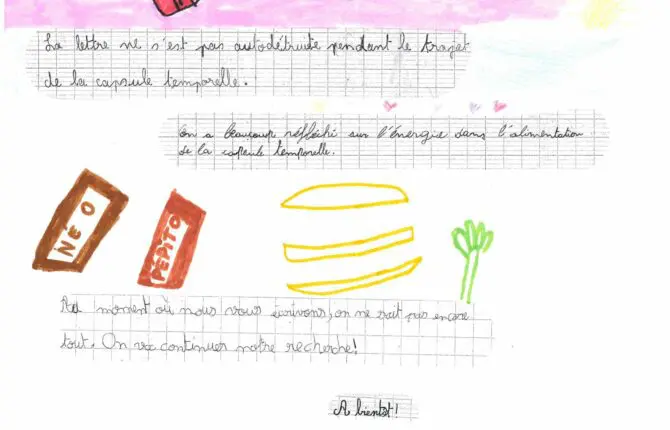 La lettre ne s'est pas autodétruite pendant le trajet
de la capsule temporelle.
On a beaucoup réfléchi sur l'énergie dans l'alimentation
de la capsule temporelle.
NÉO
PÉPITO
Au moment où nous vous écrivons, on ne sait pas encore
tout. On va continuer notre recherche!
A bientot!